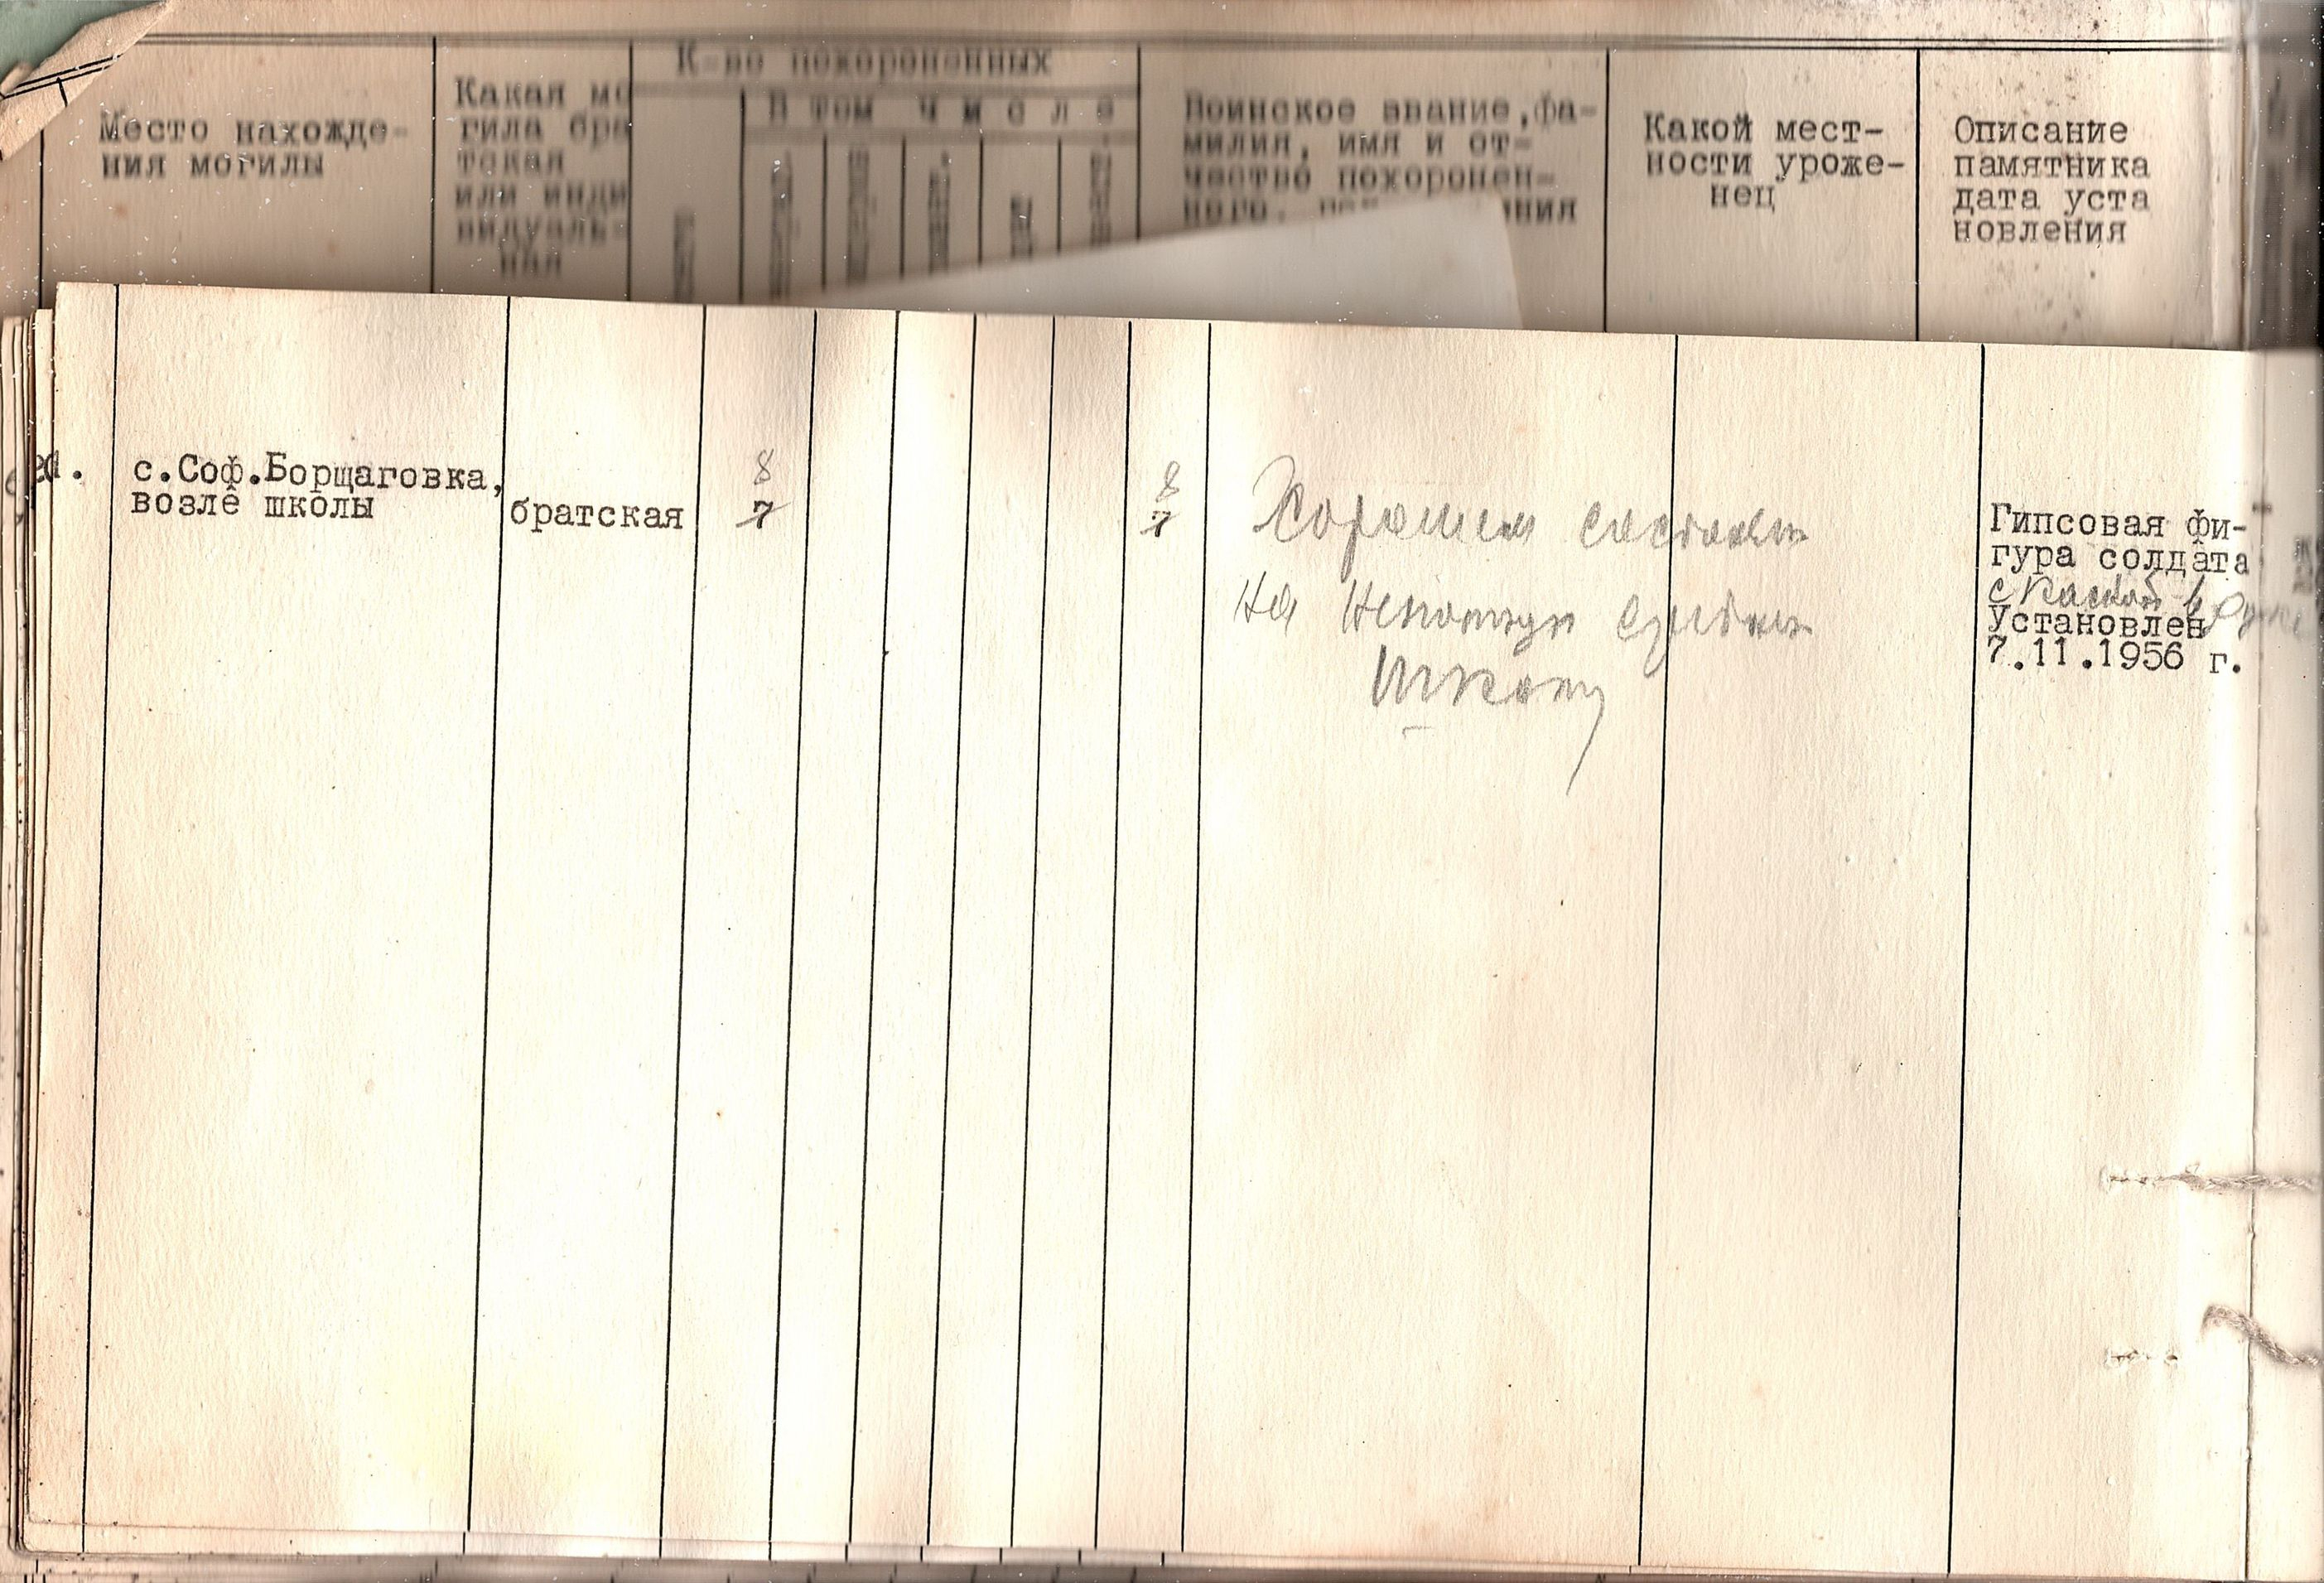 К-во похороненных
Место нахожде-
ния могилы
Какая мо
гила бра
тская
или инди
видуаль-
ная
В том числе
Воинское звание,фа-
милия, имя и от-
чество похоронен-
ного,
Какой мест-
ности уроже-
нец
Описание
памятника
дата уста
новления
с.Соф.Борщаговка,
возле школы
братская
8
7
8
7
Хорошем
На
школу
Гипсовая фи-
гура солдата
с каской в
Установлен
7.11.1956 г.